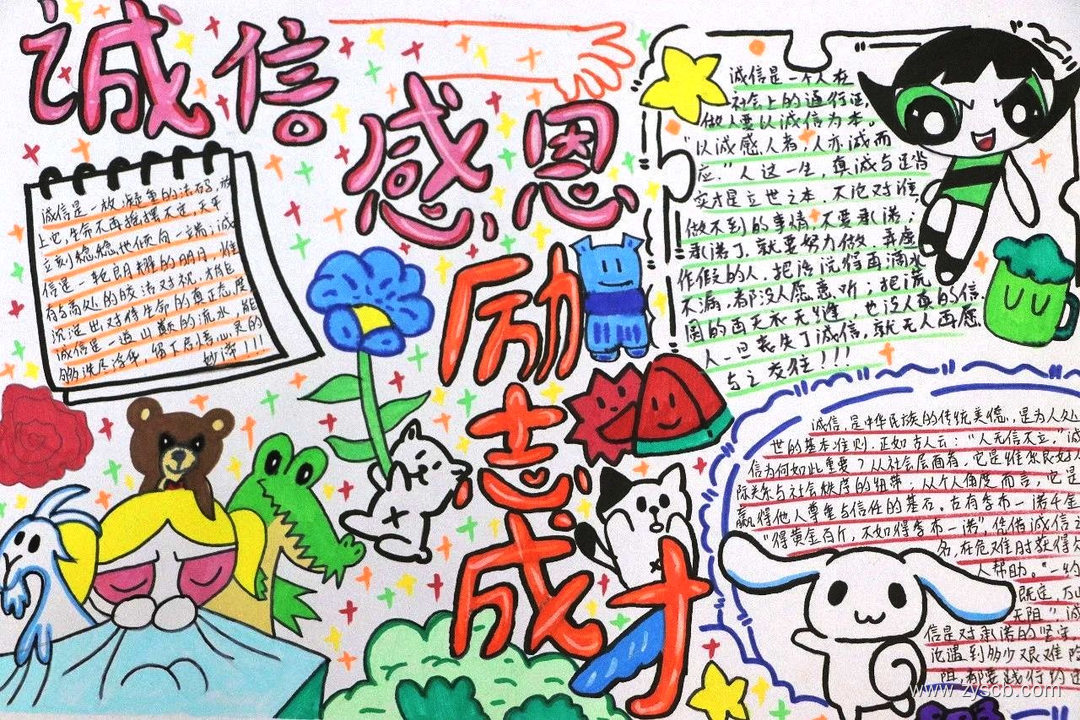 诚信
感恩
励志成才
诚信是一枚凝重的砝码,放
上它,生命不再摇摆不定,天平
立刻稳稳地倾向一端;诚
信是一轮朗耀的明月,惟
有与高处的皎洁对视,才能
沉淀出对待生命的真正态度
诚信是一道山巅的流水,能
够洗尽浮华,留下启清心灵的
妙谛!!!
诚信是一个人在
社会上的通行证,
做人要以诚信为本。
"以诚感人者,人亦诚而
应。"人这一生,真诚与正当
实才是立世之本,不论对谁,
做不到的事情,不要承诺;
承诺了,就要努力做,弄虚
作假的人,把话说得再滴水
不漏,都没人愿意听;把谎
圆的再天衣无缝,也没人真的信,
人一旦丧失了诚信,就无人再愿
与之交往!!!
诚信,是中华民族的传统美德,是为人处
世的基本准则,正如古人云:"人无信不立。"诚
信为何如此重要?从社会层面看,它是维系良好人
际关系与社会秩序的纽带;从个人角度而言,它是
赢得他人尊重与信任的基石。古有季布一诺千金
"得黄金百斤,不如得季布一诺",凭借诚信之
名,在危难时获得众
人帮助。"一约
既定,万山
无阻"。诚
信是对承诺的坚守,
论遇到多少艰难险
阻,都要践行约定
www.zyscb.com